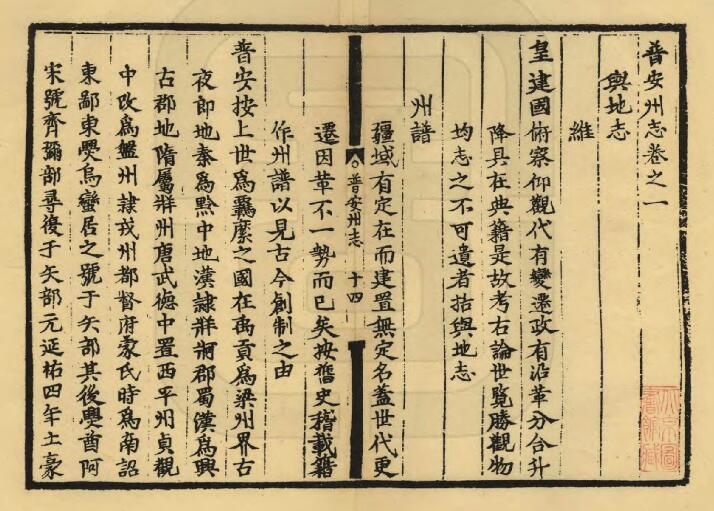 普安州志卷之一
輿地志
維
皇建國俯察仰觀代有變遷政有沿革分合升
降具在典籍是故考右論世覽勝觀物
均志之不可遺者括輿地志
州譜
疆域有定在而建置無定名蓋世代更
普安州志 十四
遷因革不一勢而已矣按舊史稽載籍
作州譜以見古今創制之由
普安按上世爲羈縻之國在禹貢爲梁州界古
夜郎地秦爲黔中地漢隷牂牁郡蜀漢爲興
古郡地隋屬牂州唐武德中置西平州貞觀
中改爲盤州隷戎州都督府蒙氏時爲南詔
東鄙東爨烏蠻居之號于矢部其後爨酋阿
宋號齊彌部尋復于矢部元延祐四年土豪